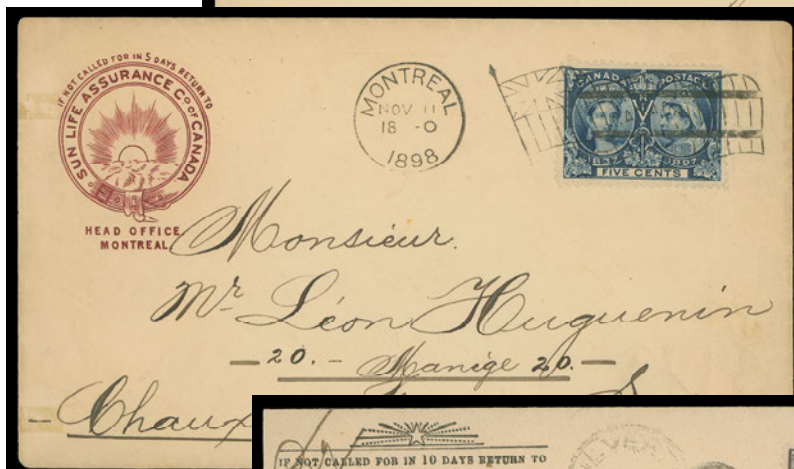 IF NOT CALLED FOR IN 5 DAYS RETURN TO
SUN LIFE ASSURANCE Co OF CANADA
HEAD OFFICE
MONTREAL
MONTREAL
NOV 11
18 - 0
1898
CANADA POSTAGE
1837 1897
FIVE CENTS
Monsieur.
Mr. Léon Huguenin
— 20. — Manège 20. —
— Chaux
IF NOT CALLED FOR IN 10 DAYS RETURN TO